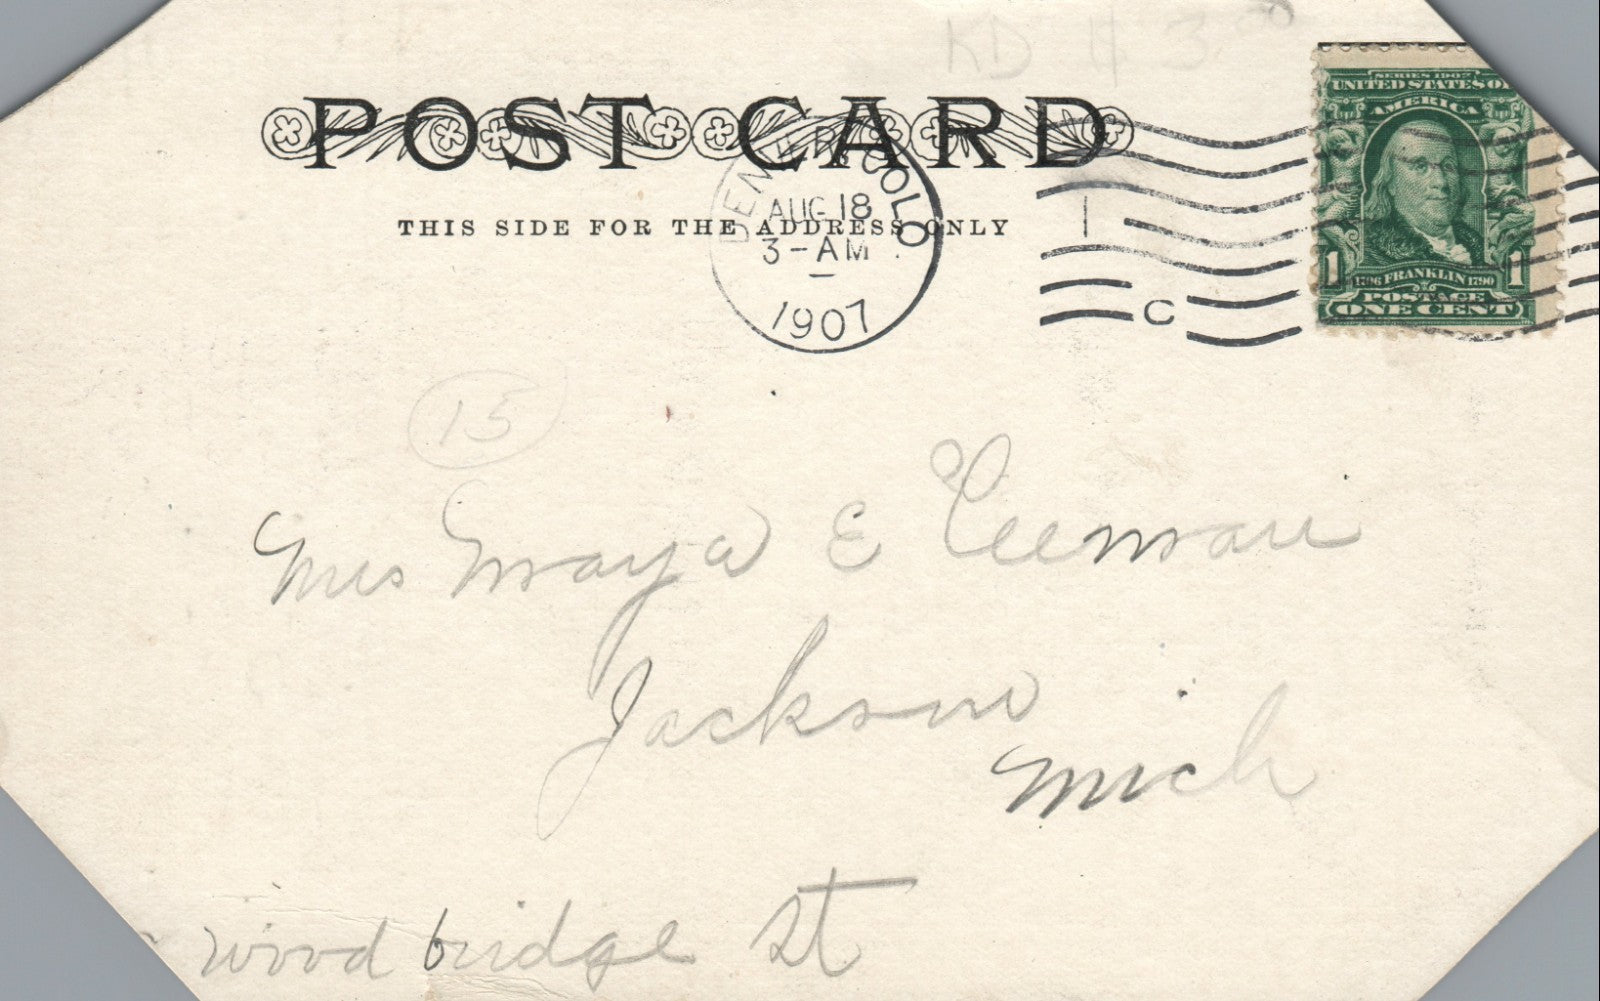 KD $ 3.00
POST CARD
THIS SIDE FOR THE ADDRESS ONLY
DENVER, COLO.
AUG 18
3-AM
1907
C
SERIES 1902
UNITED STATES OF
AMERICA
1706 FRANKLIN 1790
1 1
POSTAGE
ONE CENT
15
Mrs Maya E
Jackson
Mich
Woodbridge St